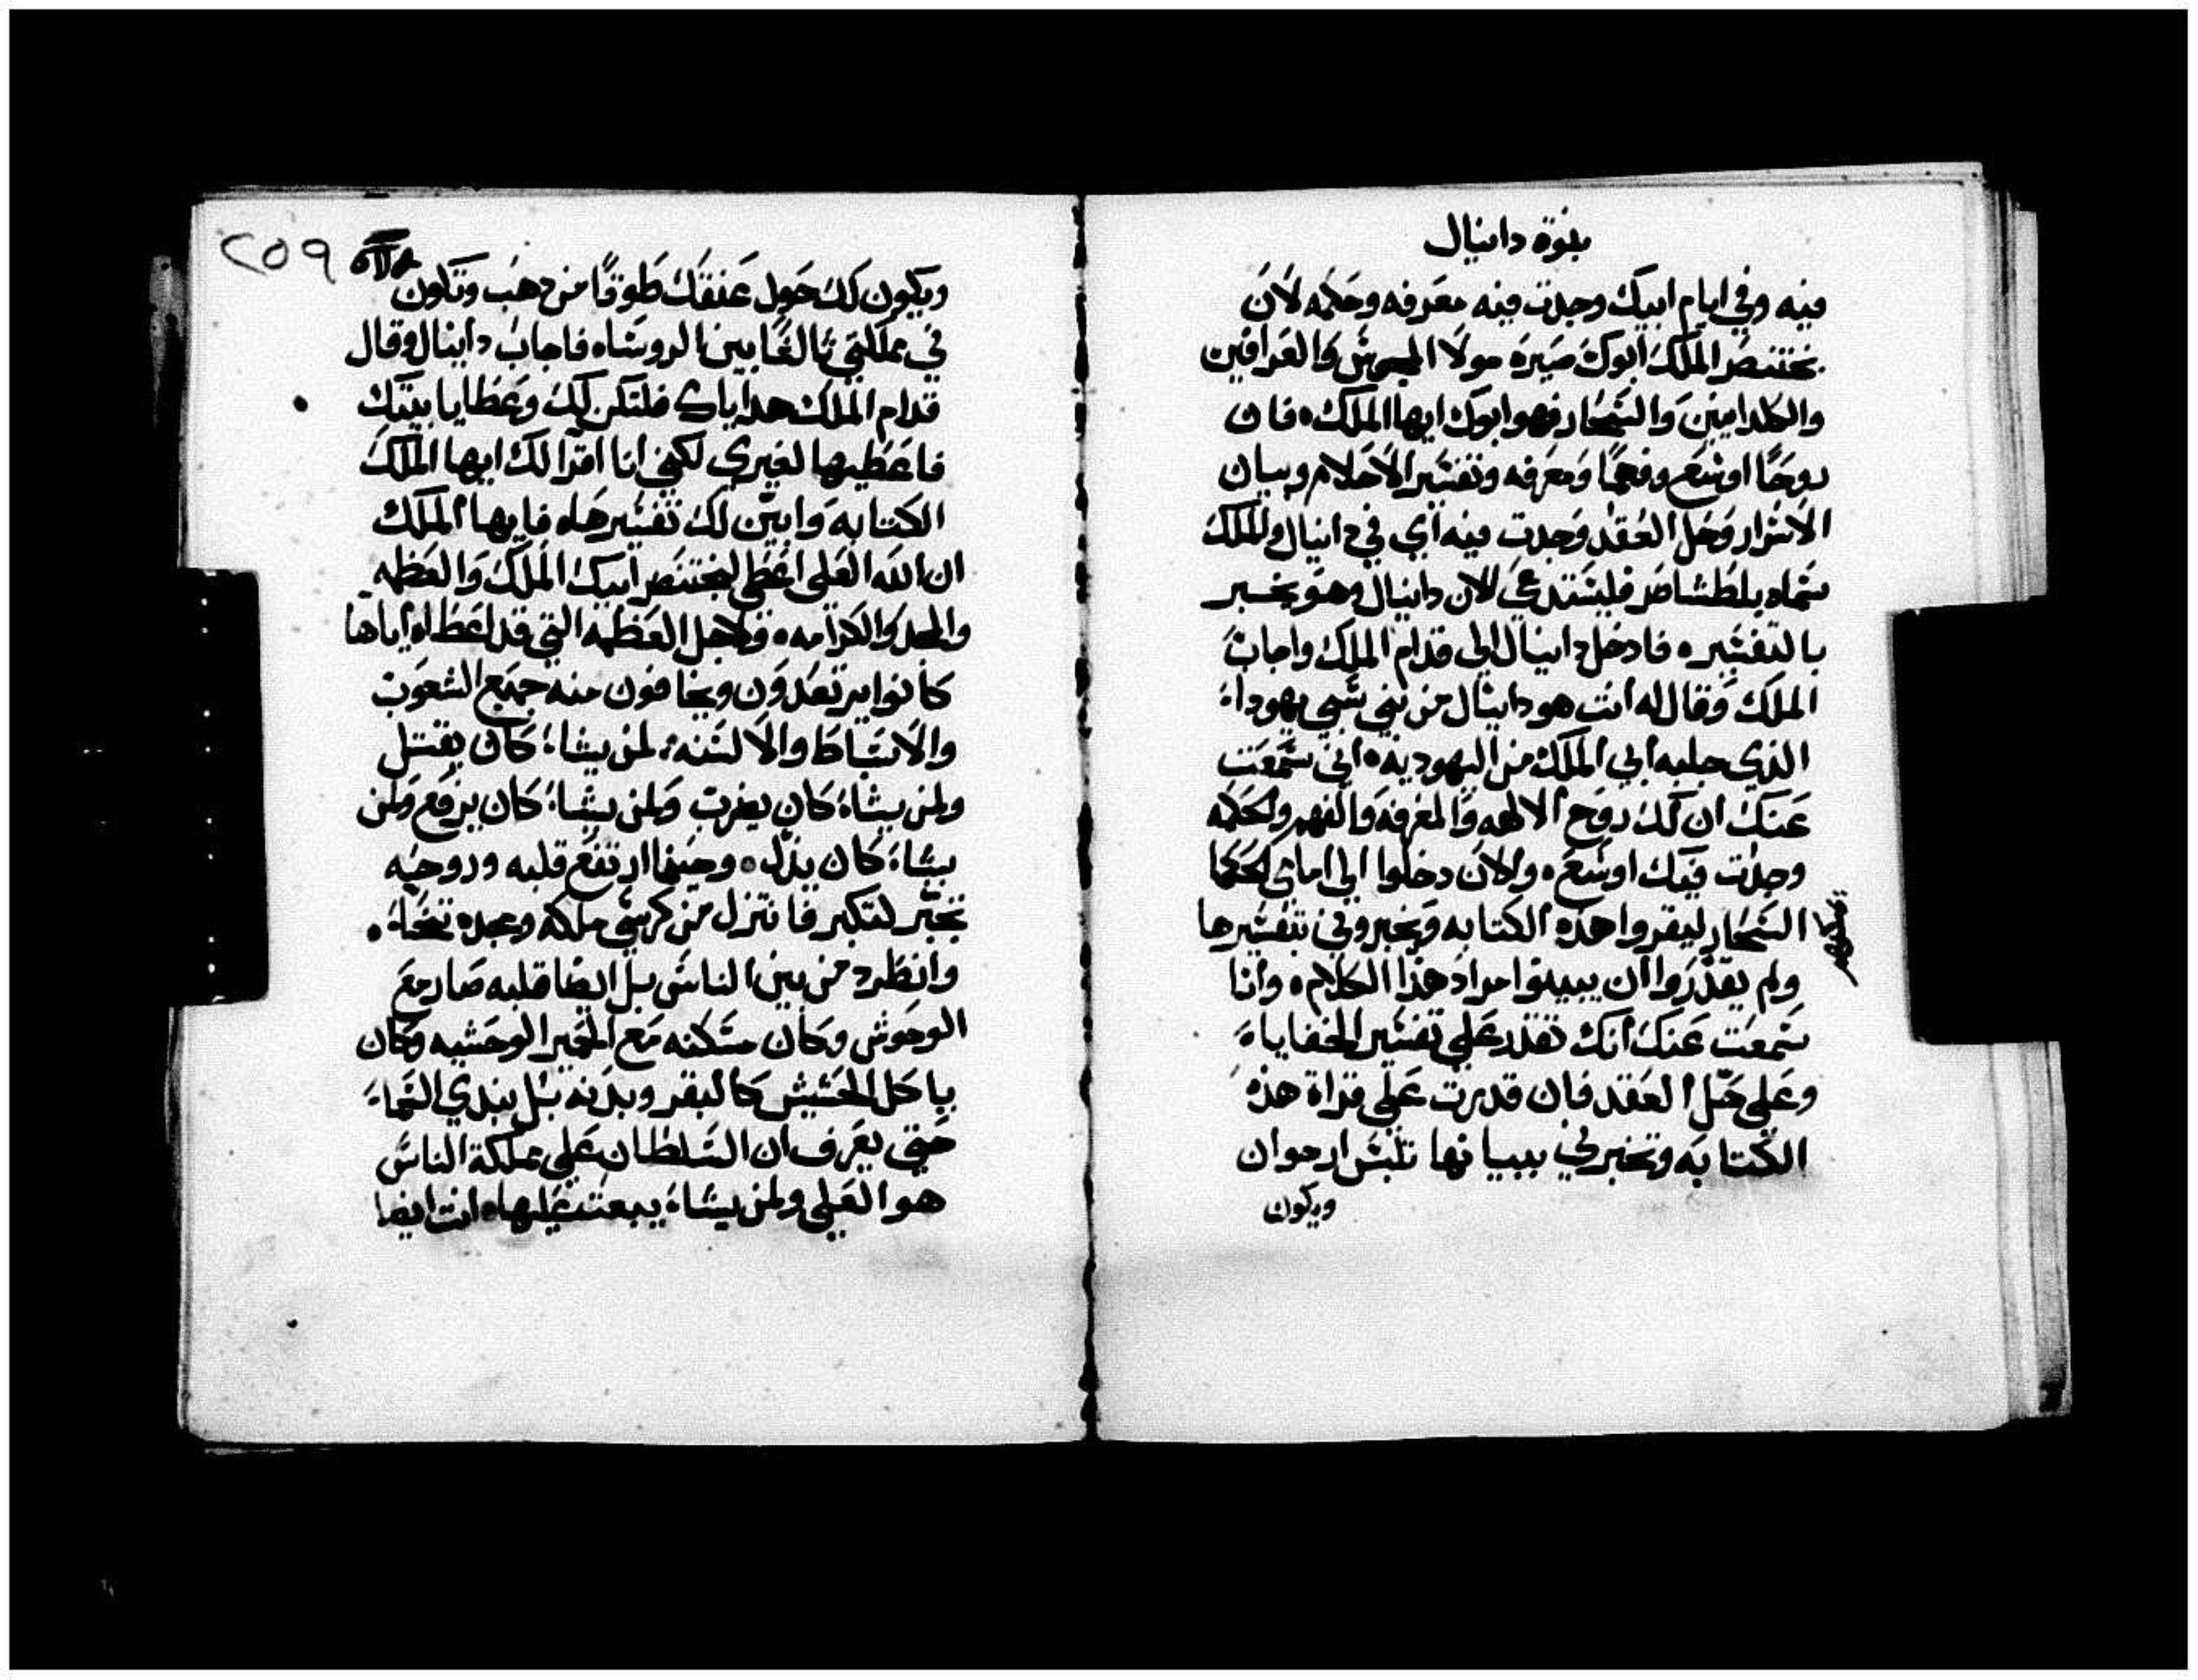 نبوة دانيال
فيه وفي ايام ابيك وجدت فيه معرفه وحكمه لان
بختنصر الملك ابوك صيره مولا المجوس والعرافين
والكلدانيين والسحار فهو ابوك ايها الملك ، فان
روحًا اوسع وفهمًا ومعرفه وتفسير الاحلام وبيان
الاسرار وحل العقد وجدت فيه اي في دانيال والملك
سماه بلطشاصر فليستدعي الان دانيال وهو يخبر
بالتفسير ، فادخل دانيال الي قدام الملك واجاب
الملك وقال له انت هو دانيال من بني سبي يهودا
الذي جلبه ابي الملك من اليهوديه ، اني سمعت
عنك ان لك روح الالهه والمعرفه والفهم والحكمه
وجدت فيك اوسع ، والان دخلوا الي امامي الحكما
السحار ليقروا هذه الكتابه ويخبروني بتفسيرها
ولم يقدروا ان يبينوا مراد هذا الكلام ، وانا
سمعت عنك انك تقدر علي تفسير الخفايا
وعلي حل العقد فان قدرت علي قراة هذه
الكتابه وتخبرني ببيانها تلبس ارجوان
ويكون
٢٥٩
ويكون لك حول عنقك طوقًا من دهب وتكون
في مملكتي ثالثًا بين الروساء فاجاب دانيال وقال
قدام الملك هداياك فلتكن لك وعطايا بيتك
فاعطيها لغيري لكني انا اقرا لك ايها الملك
الكتابه وابيّن لك تفسيرها ، فايها الملك
ان الله العلي اعطي لبختنصر ابيك الملك والعظمه
والمجد والكرامه ، ولاجل العظمه التي قد اعطاه اياها
كانوا يرتعدون ويخافون منه جميع الشعوب
والاسباط والالسنه ، لمن يشاء كان يقتل
ولمن يشاء كان يضرب ولمن يشاء كان يرفع ولمن
يشاء كان يذل ، وحينما ارتفع قلبه وروحه
تجبّر لتكبر فانتزل من كرسي ملكه ومجده تنحا ،
وانطرد من بين الناس بل ايضا قلبه صار مع
الوحوش وكان مسكنه مع الحمير الوحشيه وكان
ياكل الحشيش كالبقر وبدنه بُل بندي السماء
حتي يعرف ان السلطان علي مملكة الناس
هو العلي ولمن يشاء يبعث عليها ، انت ايضا